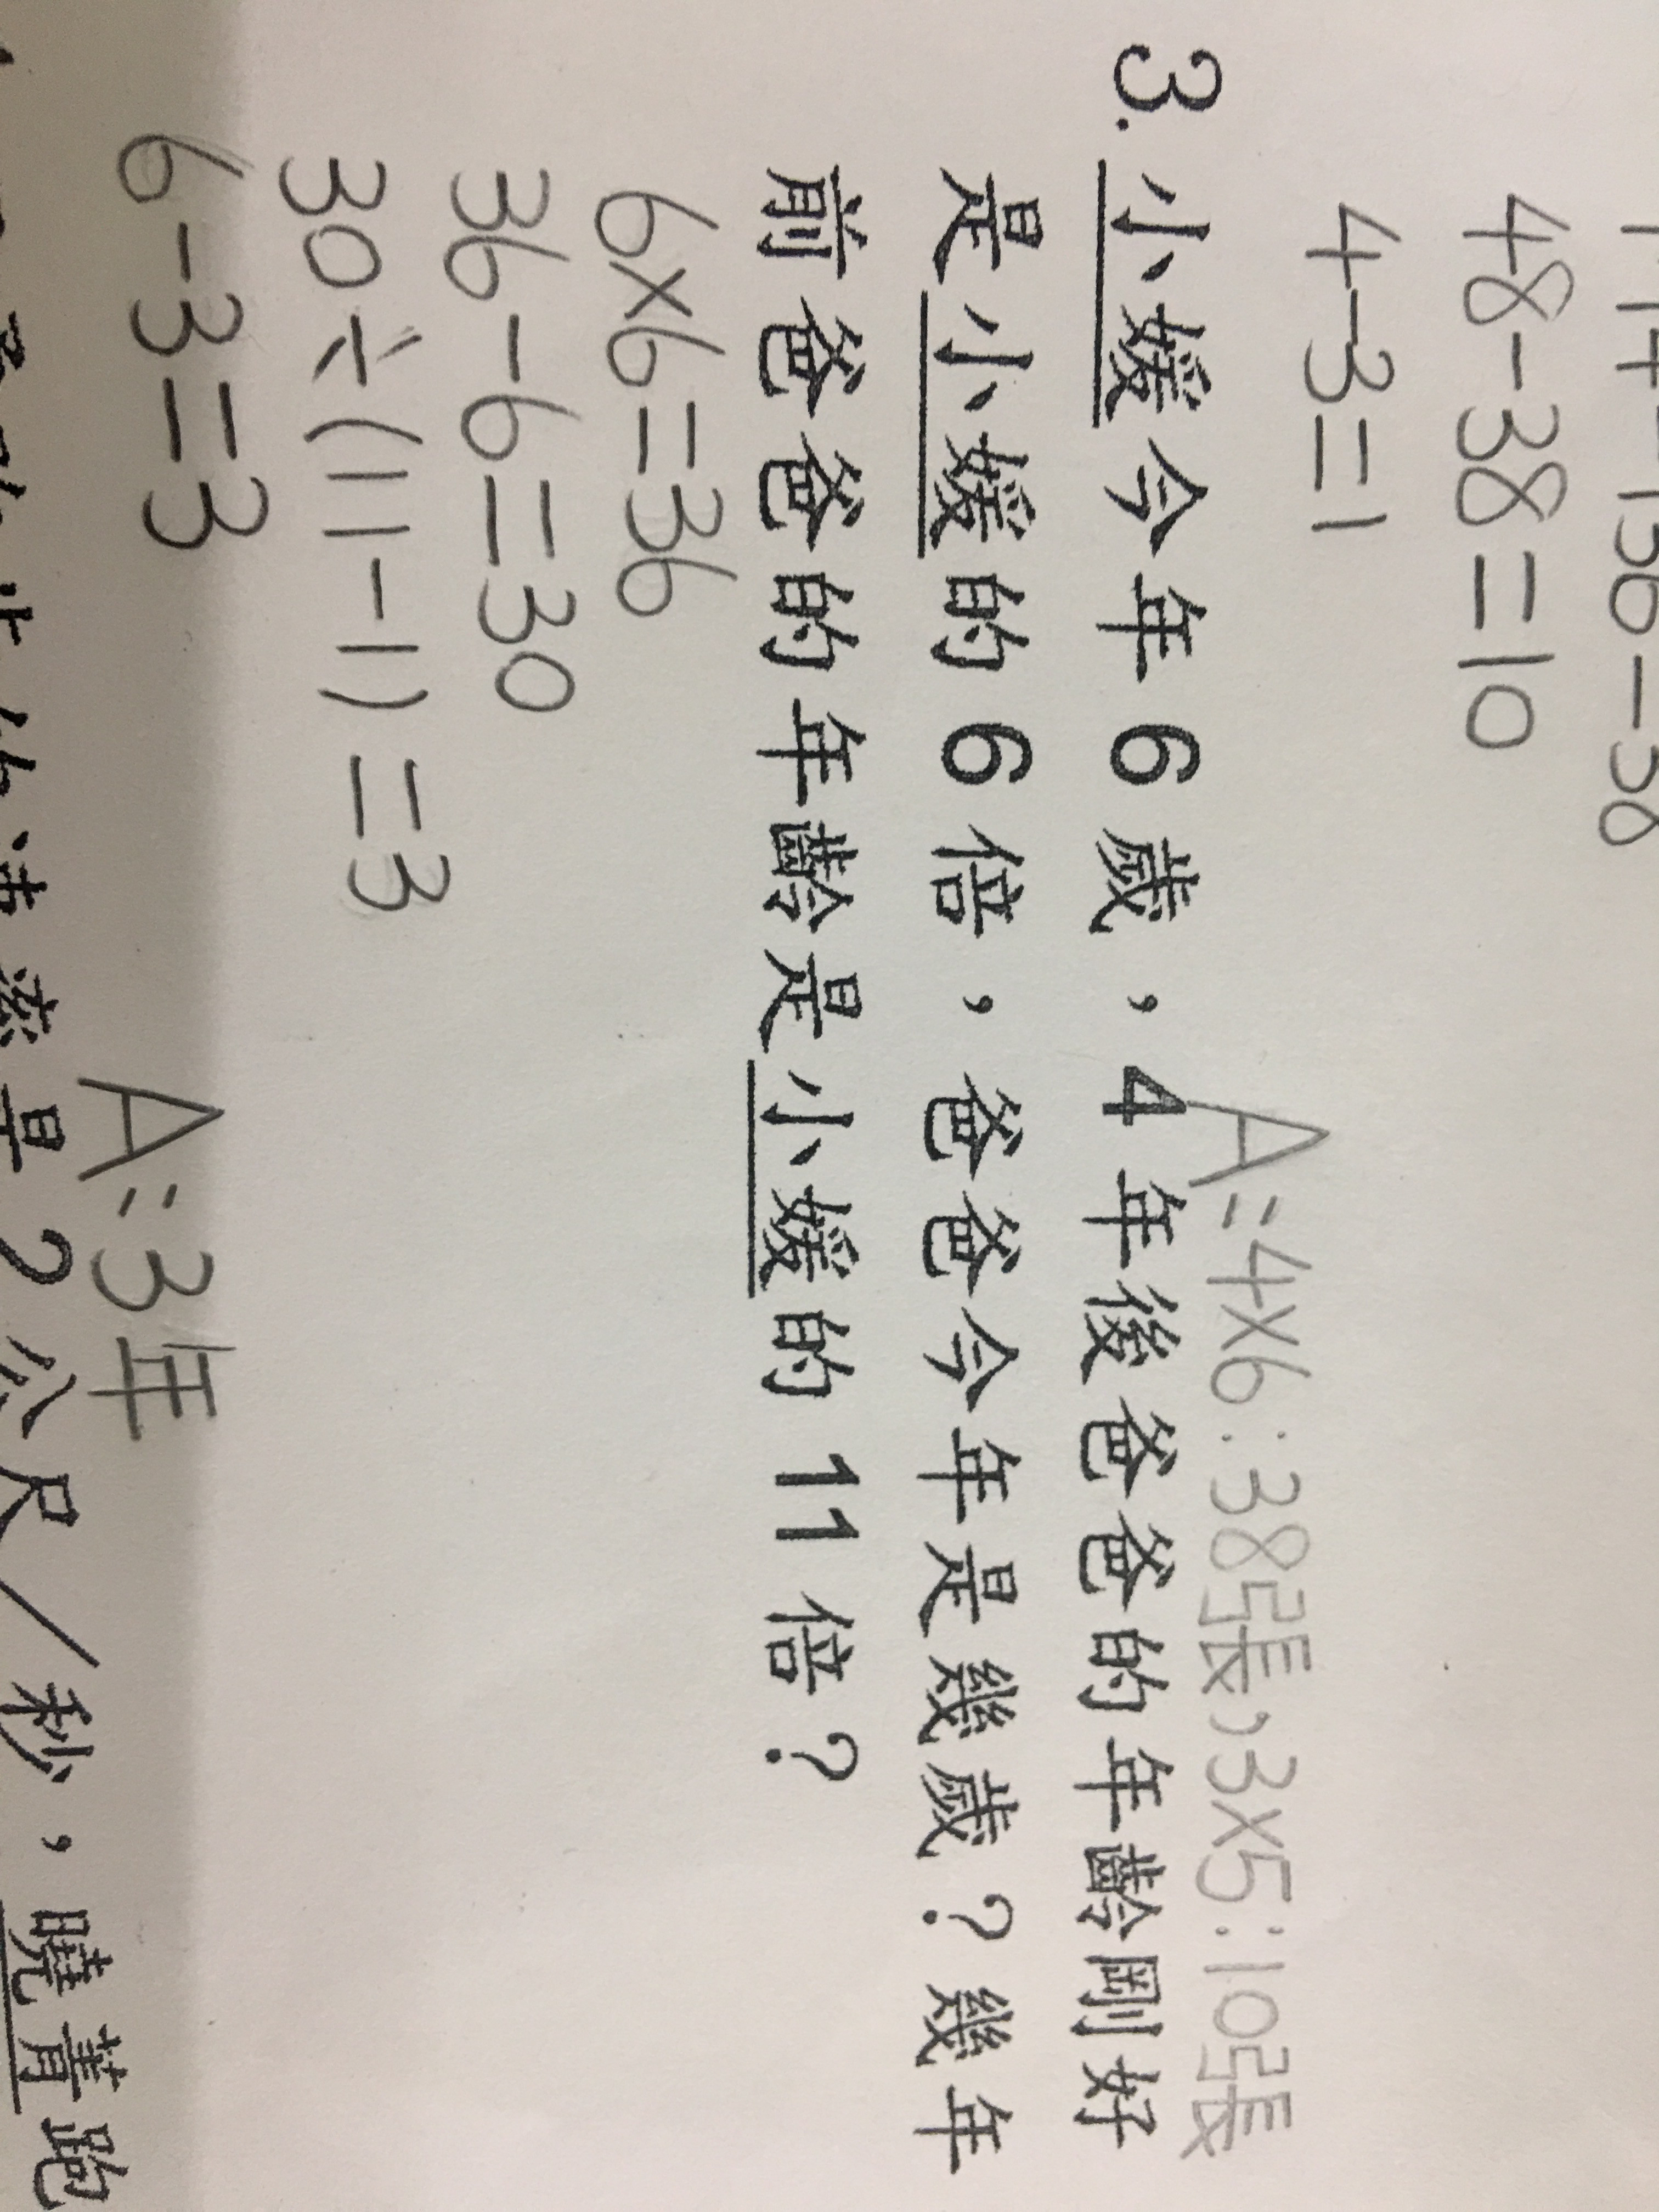 48-38=10
4-3=1
A:4×6:38張,3×5:10張
3. 小媛今年6歲,4年後爸爸的年齡剛好
是小媛的6倍,爸爸今年是幾歲?幾年
前爸爸的年齡是小媛的11倍?
6×6=36
36-6=30
30÷(11-1)=3
6-3=3
A:3年
2公尺/秒,曉菁跑